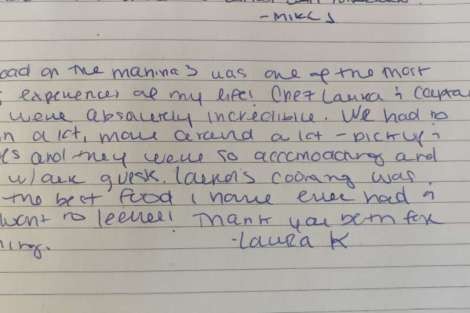 -MIKE S
oad on the manna's was one of the most
experiences of my life! Chef Laura & Capta
were absolutely incredible. We had to
n a lot, move around a lot - pickup &
s and they were so accomodating and
w/ our guests. Laura's cooking was
the best food i have ever had &
want to leave! Thank you both for
ing. -Laura K